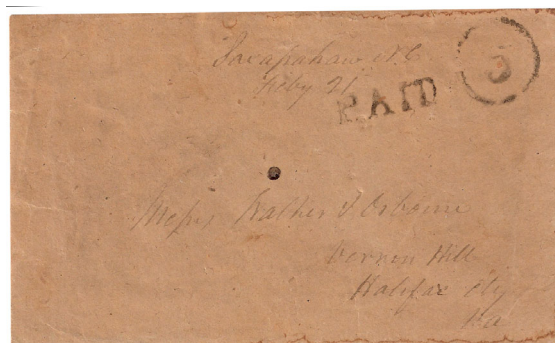 Saxapahaw N.C.
Feby 21
PAID
5
Messrs & Osborne
Vernon Hill
Halifax Cty
Va